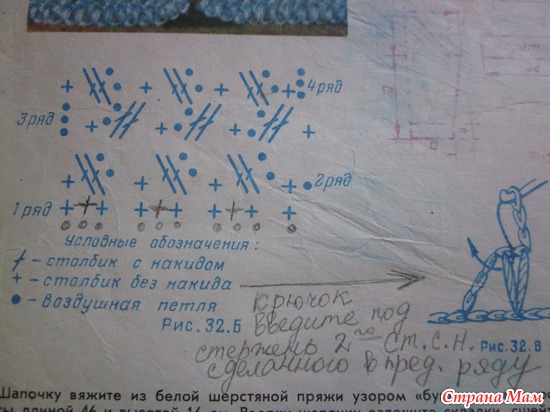 4 ряд
3 ряд
2 ряд
1 ряд
Условные обозначения:
- столбик с накидом
- столбик без накида
- воздушная петля
Рис. 32.Б
крючок
введите под
стержень 2го ст. с. н.
сделанного в пред. ряду
Рис. 32.В
Шапочку вяжите из белой шерстяной пряжи узором
длиной 46 и высотой
Страна Мам